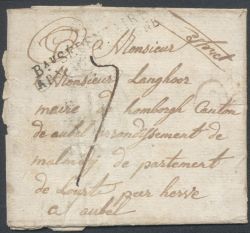 A Monsieur
Monsieur Langhoor
maire de homborgh Canton
de aubel arrondissement de
malmedy de partement
de Lourt par herve
a aubel